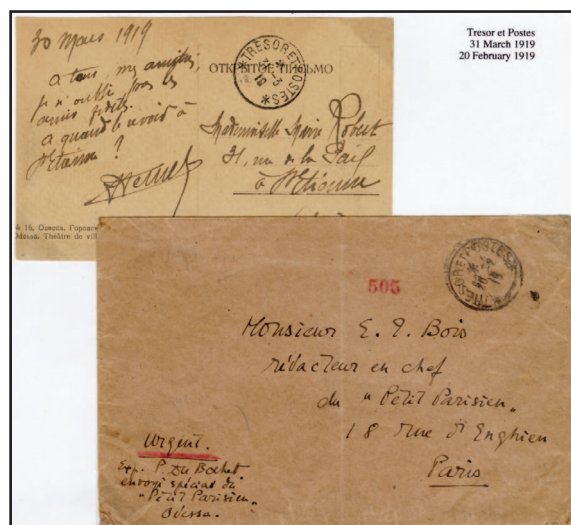 Tresor et Postes
31 March 1919
20 February 1919
30 Mars 1919
a tous, mes amitiés,
Je n'oublie pas les
amis fidèles.
a quand le revoir à
St Etienne ?
ОТКРЫТОЕ ПИСЬМО
TRESOR ET POSTES
Mademoiselle Marie Robert
31, rue de la Paix
à St Etienne
№ 16. Одесса. Городск
Odessa. Théâtre de vil
505
TRESOR ET POSTES
Monsieur E. T. Bois
rédacteur en chef
du "Petit Parisien"
18 rue d'Enghien
Paris
Urgent.
Exp. P. Du Bochet
envoyé spécial du
"Petit Parisien"
Odessa.